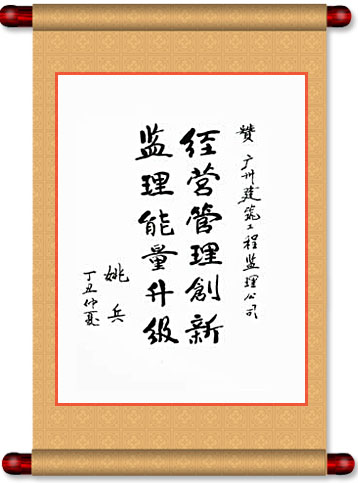 赞广州建筑工程监理公司
经营管理創新
监理能量升级
姚兵
丁丑仲夏